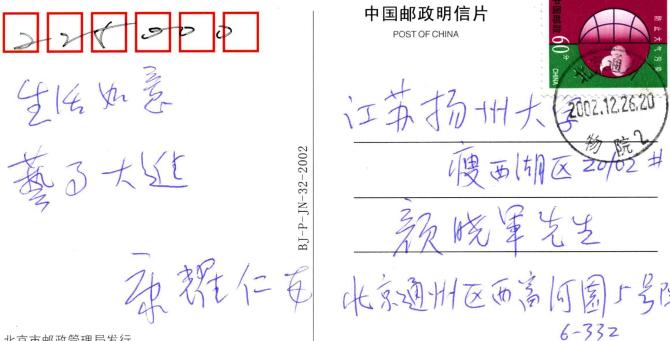 225000
中国邮政明信片
POST OF CHINA
中国邮政
60分
CHINA
防止大气污染
2002.12.26.20
物院2
生活如意
艺事大进
康耀仁
江苏扬州大学
瘦西湖区20/02#
颜晓军先生
北京通州区西富河园5号院
6-332
BJ-P-JN-32-2002
北京市邮政管理局发行